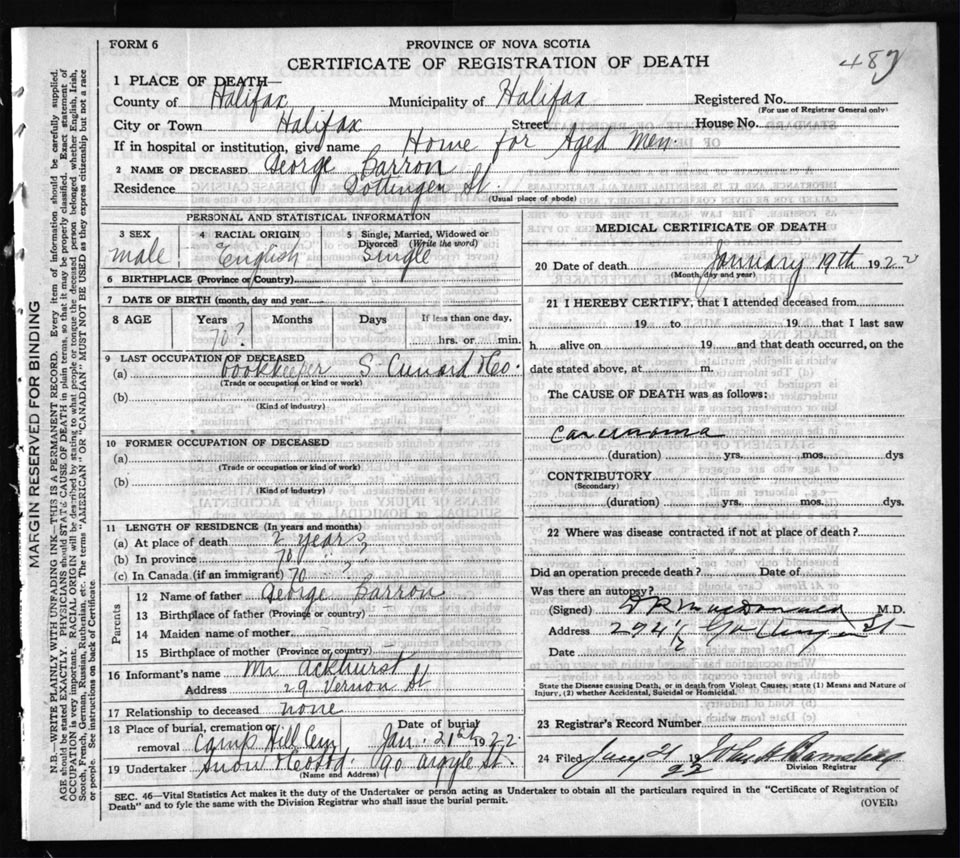 FORM 6
PROVINCE OF NOVA SCOTIA
CERTIFICATE OF REGISTRATION OF DEATH
487
1 PLACE OF DEATH—
County of Halifax Municipality of Halifax Registered No.
(For use of Registrar General only)
City or Town Halifax Street House No.
If in hospital or institution, give name Home for Aged Men
2 NAME OF DECEASED George Barron
Residence Gottingen St.
(Usual place of abode)
PERSONAL AND STATISTICAL INFORMATION
3 SEX
male
4 RACIAL ORIGIN
English
5 Single, Married, Widowed or Divorced (Write the word)
Single
6 BIRTHPLACE (Province or Country)
7 DATE OF BIRTH (month, day and year)
8 AGE Years Months Days If less than one day,
70? hrs. or min.
9 LAST OCCUPATION OF DECEASED
(a) bookkeeper S. Cunard & Co.
(Trade or occupation or kind of work)
(b)
(Kind of industry)
10 FORMER OCCUPATION OF DECEASED
(a)
(Trade or occupation or kind of work)
(b)
(Kind of industry)
11 LENGTH OF RESIDENCE (In years and months)
(a) At place of death 2 years
(b) In province 70 ?
(c) In Canada (if an immigrant) 70 ?
Parents
12 Name of father George Barron
13 Birthplace of father (Province or country) —
14 Maiden name of mother
15 Birthplace of mother (Province or country) —
16 Informant's name Mr Ackhurst
Address 29 Vernon St
17 Relationship to deceased none
18 Place of burial, cremation or removal Camp Hill Cem
Date of burial Jan. 21st 1922
19 Undertaker Snow & Co Ltd. 90 Argyle St.
(Name and Address)
MEDICAL CERTIFICATE OF DEATH
20 Date of death January 19th 1922
(Month, day and year)
21 I HEREBY CERTIFY, that I attended deceased from
19 to 19 that I last saw
h alive on 19 and that death occurred, on the
date stated above, at m.
The CAUSE OF DEATH was as follows:
Carcinoma
(duration) yrs. mos. dys
CONTRIBUTORY
(Secondary)
(duration) yrs. mos. dys.
22 Where was disease contracted if not at place of death?
Did an operation precede death? Date of
Was there an autopsy?
(Signed) MacDonald M.D.
Address 294½ Gottingen St
Date
State the Disease causing Death, or in death from Violent Causes, state (1) Means and Nature of
Injury, (2) whether Accidental, Suicidal or Homicidal.
23 Registrar's Record Number
24 Filed Jany 21 19 22
Division Registrar
SEC. 46—Vital Statistics Act makes it the duty of the Undertaker or person acting as Undertaker to obtain all the particulars required in the "Certificate of Registration of
Death" and to fyle the same with the Division Registrar who shall issue the burial permit.
(OVER)
MARGIN RESERVED FOR BINDING
N.B.—WRITE PLAINLY WITH UNFADING INK—THIS IS A PERMANENT RECORD. Every item of information should be carefully supplied.
AGE should be stated EXACTLY. PHYSICIANS should STATE CAUSE OF DEATH in plain terms, so that it may be properly classified. Exact statement of
OCCUPATION is very important. RACIAL ORIGIN will be described by stating to what people or tongue the deceased person belonged whether English, Irish,
Scotch, French, German, Russian, Ruthenian, etc. The terms "AMERICAN" OR "CANADIAN" MUST NOT BE USED as they express citizenship but not a race
or people. See instructions on back of Certificate.